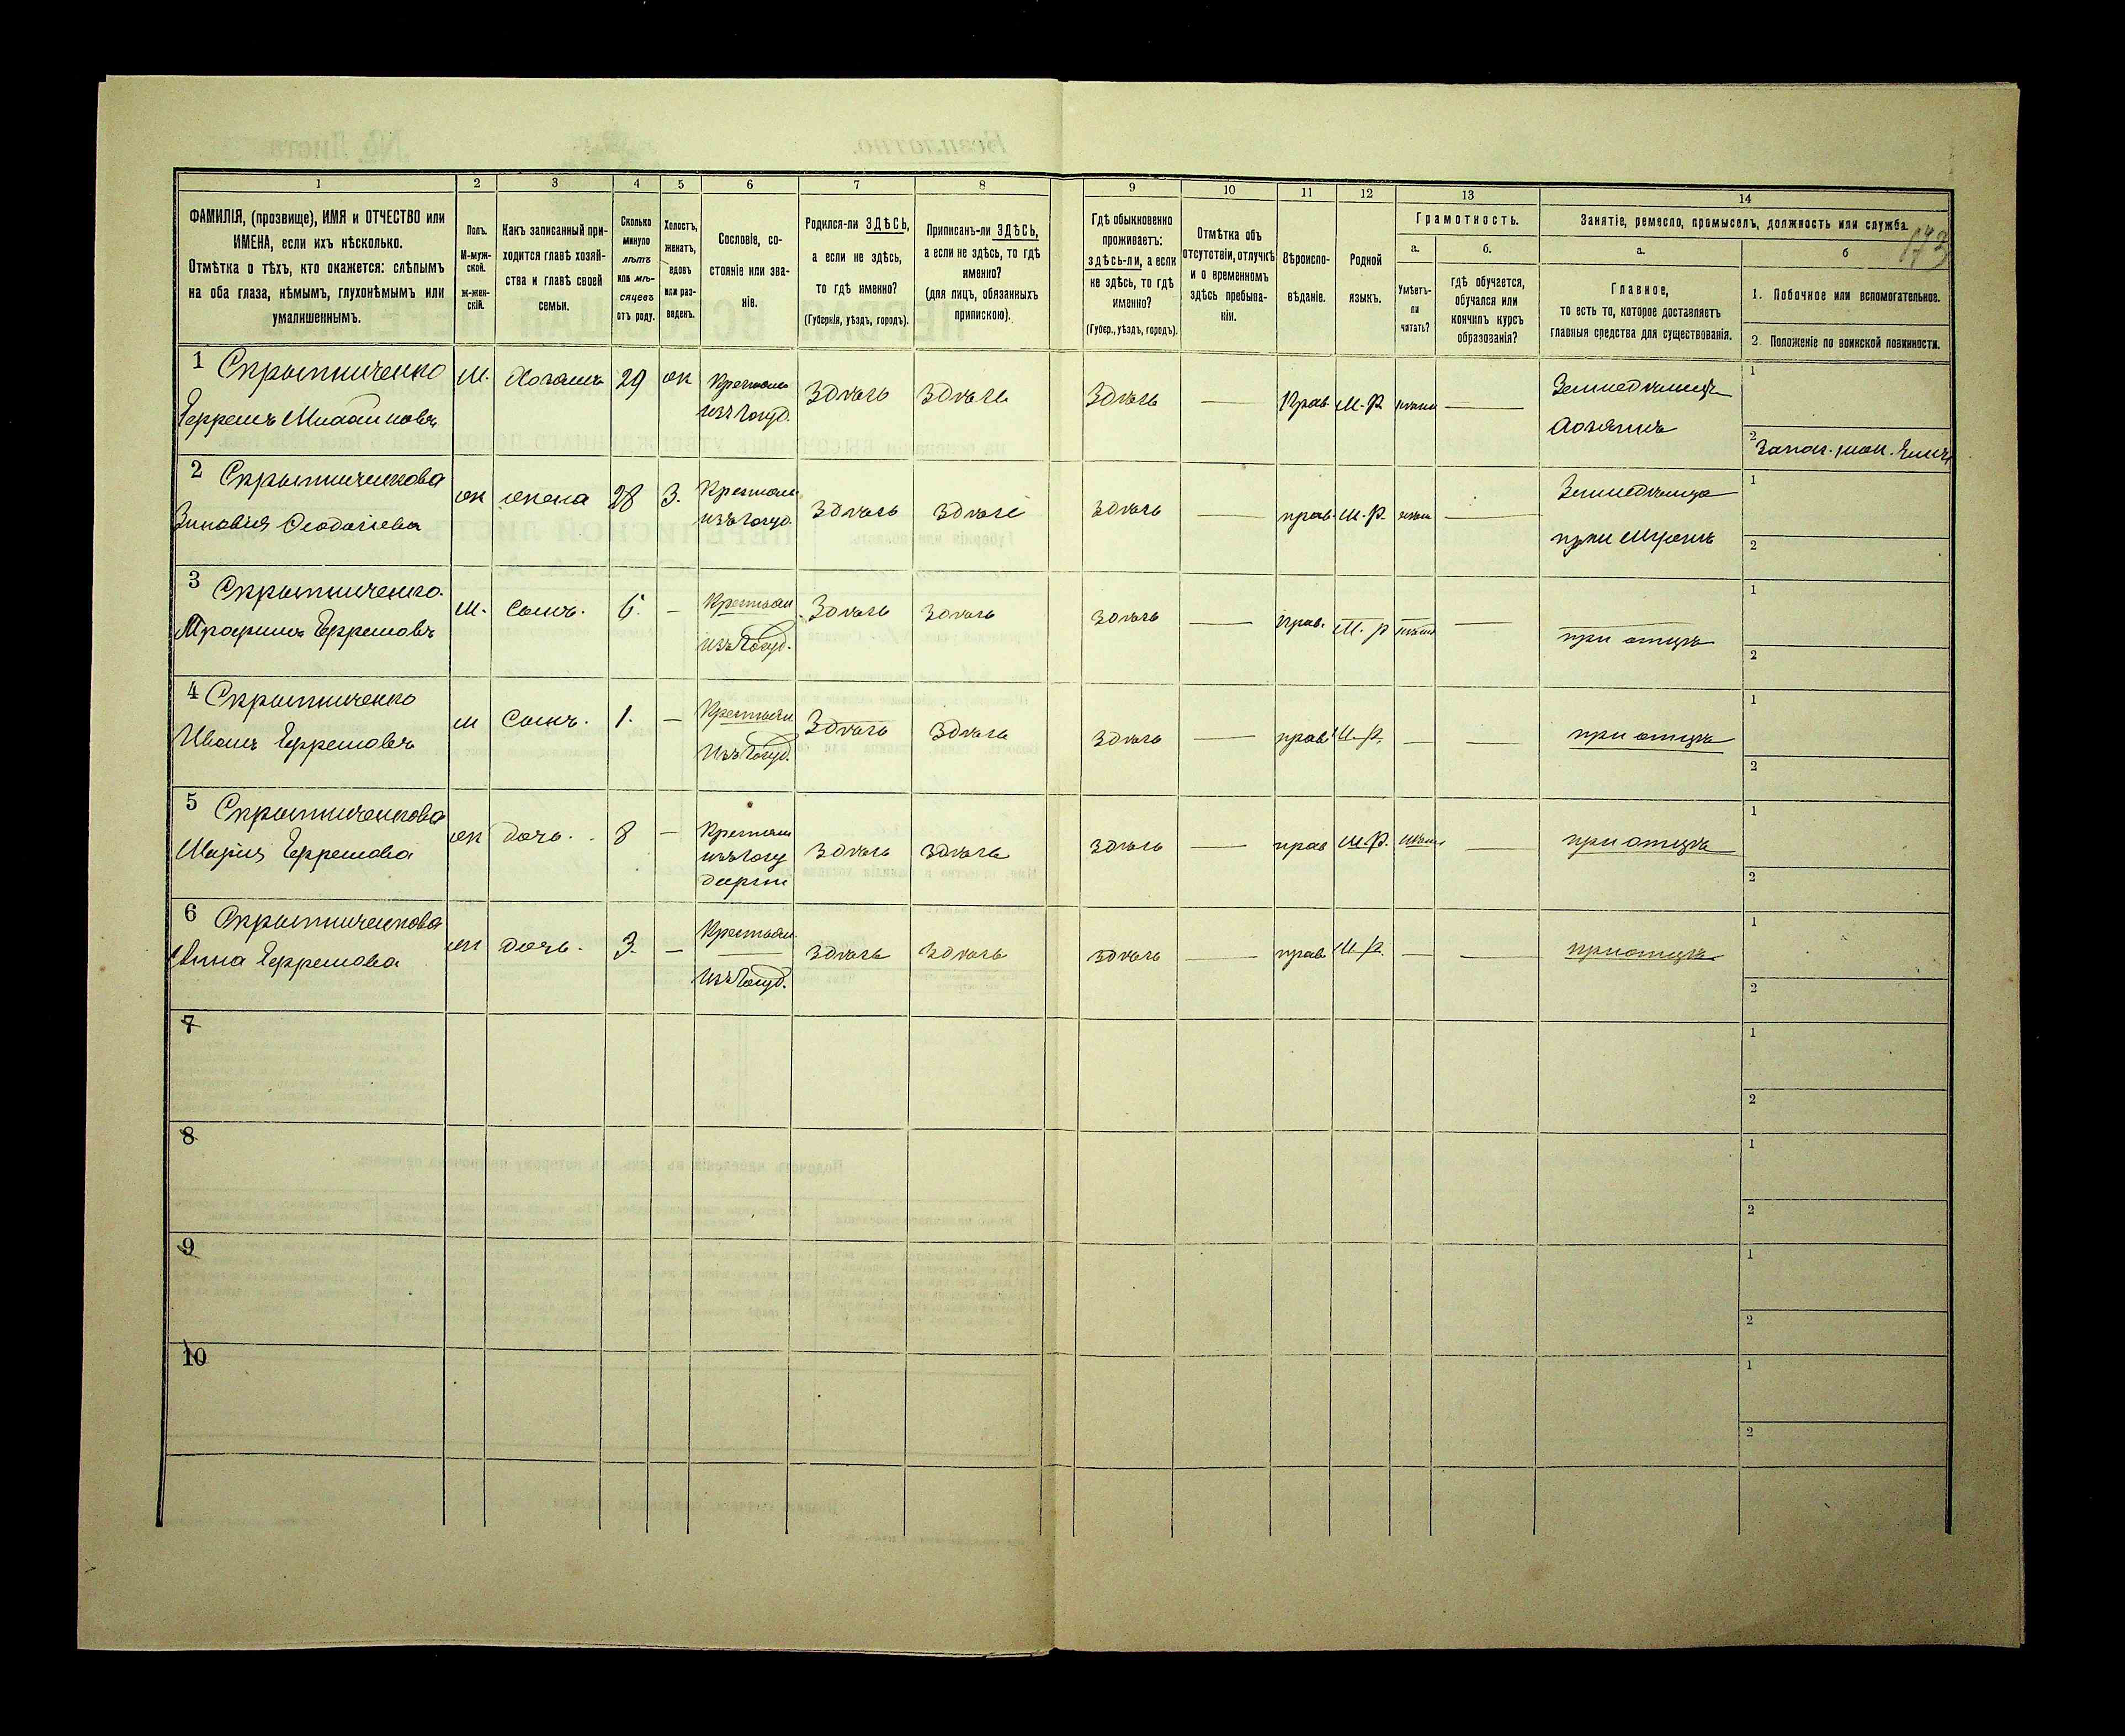 1 2 3 4 5 6 7 8 9 10 11 12 13 14
ФАМИЛІЯ, (прозвище), ИМЯ и ОТЧЕСТВО или
ИМЕНА, если ихъ нѣсколько.
Отмѣтка о тѣхъ, кто окажется: слѣпымъ
на оба глаза, нѣмымъ, глухонѣмымъ или
умалишеннымъ.
Полъ.
М-муж-
ской.
ж-жен-
скій.
Какъ записанный при-
ходится главѣ хозяй-
ства и главѣ своей
семьи.
Сколько
минуло
лѣтъ
или мѣ-
сяцевъ
отъ роду.
Холостъ,
женатъ,
вдовъ
или раз-
веденъ.
Сословіе, со-
стояніе или зва-
ніе.
Родился-ли ЗДѢСЬ,
а если не здѣсь,
то гдѣ именно?
(Губернія, уѣздъ, городъ).
Приписанъ-ли ЗДѢСЬ,
а если не здѣсь, то гдѣ
именно?
(для лицъ, обязанныхъ
припискою).
Гдѣ обыкновенно
проживаетъ:
здѣсь-ли, а если
не здѣсь, то гдѣ
именно?
(Губер., уѣздъ, городъ).
Отмѣтка объ
отсутствіи, отлучкѣ
и о временномъ
здѣсь пребыва-
ніи.
Вѣроиспо-
вѣданіе.
Родной
языкъ.
Грамотность.
а.
Умѣетъ-
ли
читать?
б.
гдѣ обучается,
обучался или
кончилъ курсъ
образованія?
Занятіе, ремесло, промыселъ, должность или служба.
173
а.
Главное,
то есть то, которое доставляетъ
главныя средства для существованія.
б
1. Побочное или вспомогательное.
2. Положеніе по воинской повинности.
1 Скрытниченко м. Хозяинъ 29 ж Крестьян Здѣсь Здѣсь Здѣсь — Прав М.Р. — Земледѣлецъ 1
изъ Госуд. Хозяинъ 2
2 Скрытниченкова ж жена 28 З. Крестьян Здѣсь здѣсь здѣсь — прав. М.Р. — 1
Зиновія изъ Госуд. при мужѣ 2
3 Скрытниченко м. Сынъ. 6. — Крестьян Здѣсь Здѣсь Здѣсь — Прав. М.Р — при отцѣ 1
изъ Госуд. 2
4 Скрытниченко м Сынъ. 1. — Крестьян Здѣсь Здѣсь Здѣсь — прав М.Р. — — при отцѣ 1
Иванъ изъ Госуд. 2
5 Скрытниченкова ж дочь. 8 — Крестьян здѣсь здѣсь здѣсь — прав М.Р. — при отцѣ 1
Марія изъ Госу
дарств 2
6 Скрытниченкова ж дочь. 3. — Крестьян. здѣсь здѣсь здѣсь — прав М.Р. — — при отцѣ 1
Анна изъ Госуд. 2
7 1
2
8 1
2
9 1
2
10 1
2